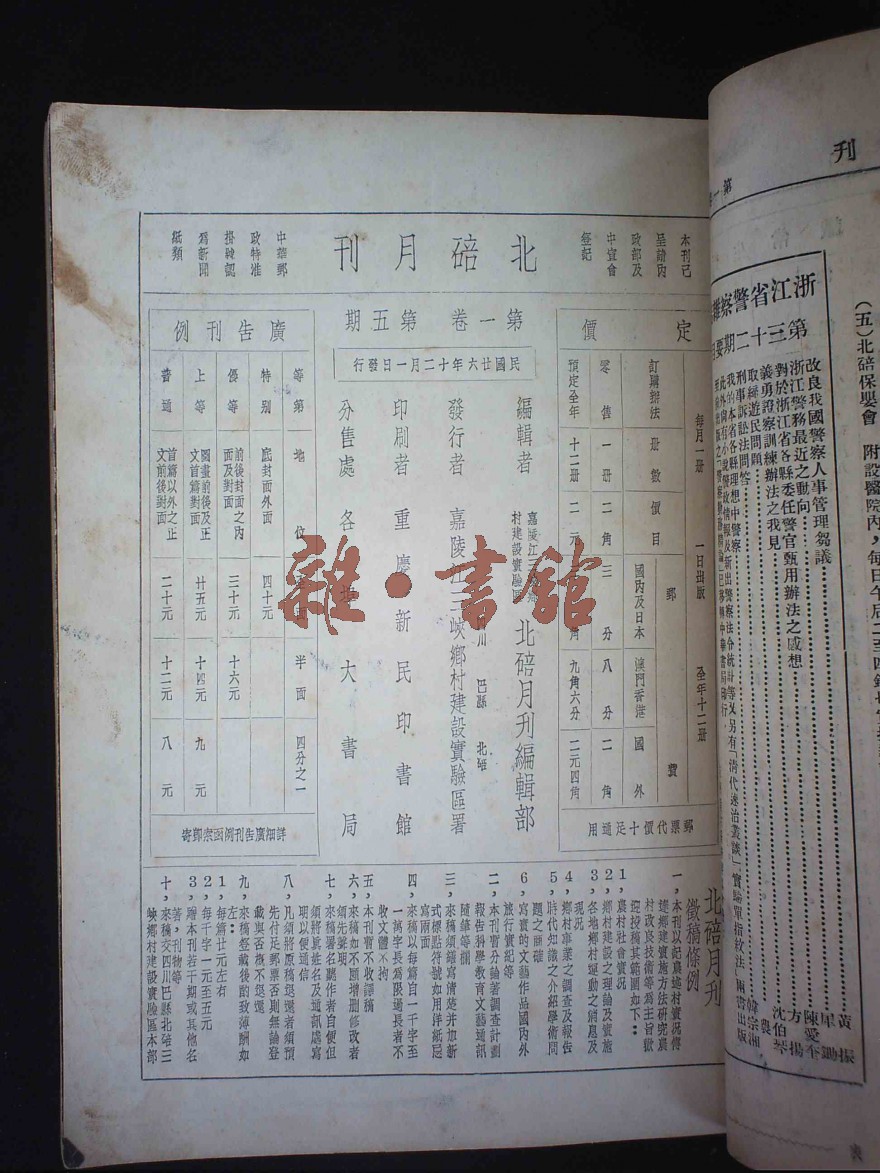 刊
浙江省警察雜
第三十二期要
改良我國警察人事管理芻議
浙江警務最近之動向
對於浙江省各縣委任警官甄用辦法之感想
義勇證察訓練辦法之我見
取締遊民問題
刑事訴訟法問答
我的本省各縣理想中警察
黃振
陳愛奎
方揚
沈伯琴
韓宗湘
(五)北碚保嬰會 附設醫院內，每日午后二至四
本刊已
呈請內
政部及
中宣會
登記
北碚月刊
中華郵
政特准
掛號認
為新聞
紙類
定價
每月一冊 一日出版 全年十二冊
訂購辦法 冊數 價目 郵費
國內及日本 澳門香港 國外
零售 一冊 二角 三分 八分 二角
預定全年 十二冊 二元 角 九角六分 二元四角
郵票代價十足通用
第一卷 第五期
民國廿六年十二月一日發行
編輯者 嘉陵江
村建設實驗區 北碚月刊編輯部
發行者 嘉陵江三峽鄉村建設實驗區署
川 巴縣 北碚
印刷者 重慶新民印書館
分售處 各 大書局
廣告刊例
等第 地位 面 半面 四分之一
特别 底封面外面 四十元
優等 前後封面之內面及對面 三十元 十六元
上等 圖畫前後及正文首篇對面 廿五元 十四元 九元
普通 首篇以外之正文前後對面 二十元 十二元 八元
詳細廣告刊例函索郵寄
北碚月刊
徵稿條例
一，本刊以記農述村實況傳
達鄉建實施方法研究農
村改良技術等爲主旨歡
迎投稿其範圍如下：
1，農村社會實況
2，鄉村建設之理論及實施
3，各地鄉村運動之消息及
現況
4，鄉村事業之調查及報告
5，時代知識之介紹學術問
題之商榷
6，寫實的文藝作品國內外
旅行實記等
二，本刊暫分論著調查計劃
報告科學教育文藝通訊
隨筆等欄
三，來稿須繕寫清楚并加新
式標點符號如用洋紙忌
寫兩面
四，來稿以每篇自一千字至
一萬字長爲限過長者不
收文體不拘
五，本刊暫不收譯稿
六，來稿如不願增删修改者
須先聲明
七，來稿署名聽作者自便但
須將眞姓名及通訊處寫
明以便通信
八，凡須將原稿退還者須預
先付足郵票否則無論登
載與否概不退還
九，來稿登載後酌致薄酬如
左：
1，每篇廿元左右
2，每千字一元至五元
3，贈本刊若干期或其他名
著，刊物等
十，來稿交四川巴縣北碚三
峽鄉村建設實驗區本部
雜·書館